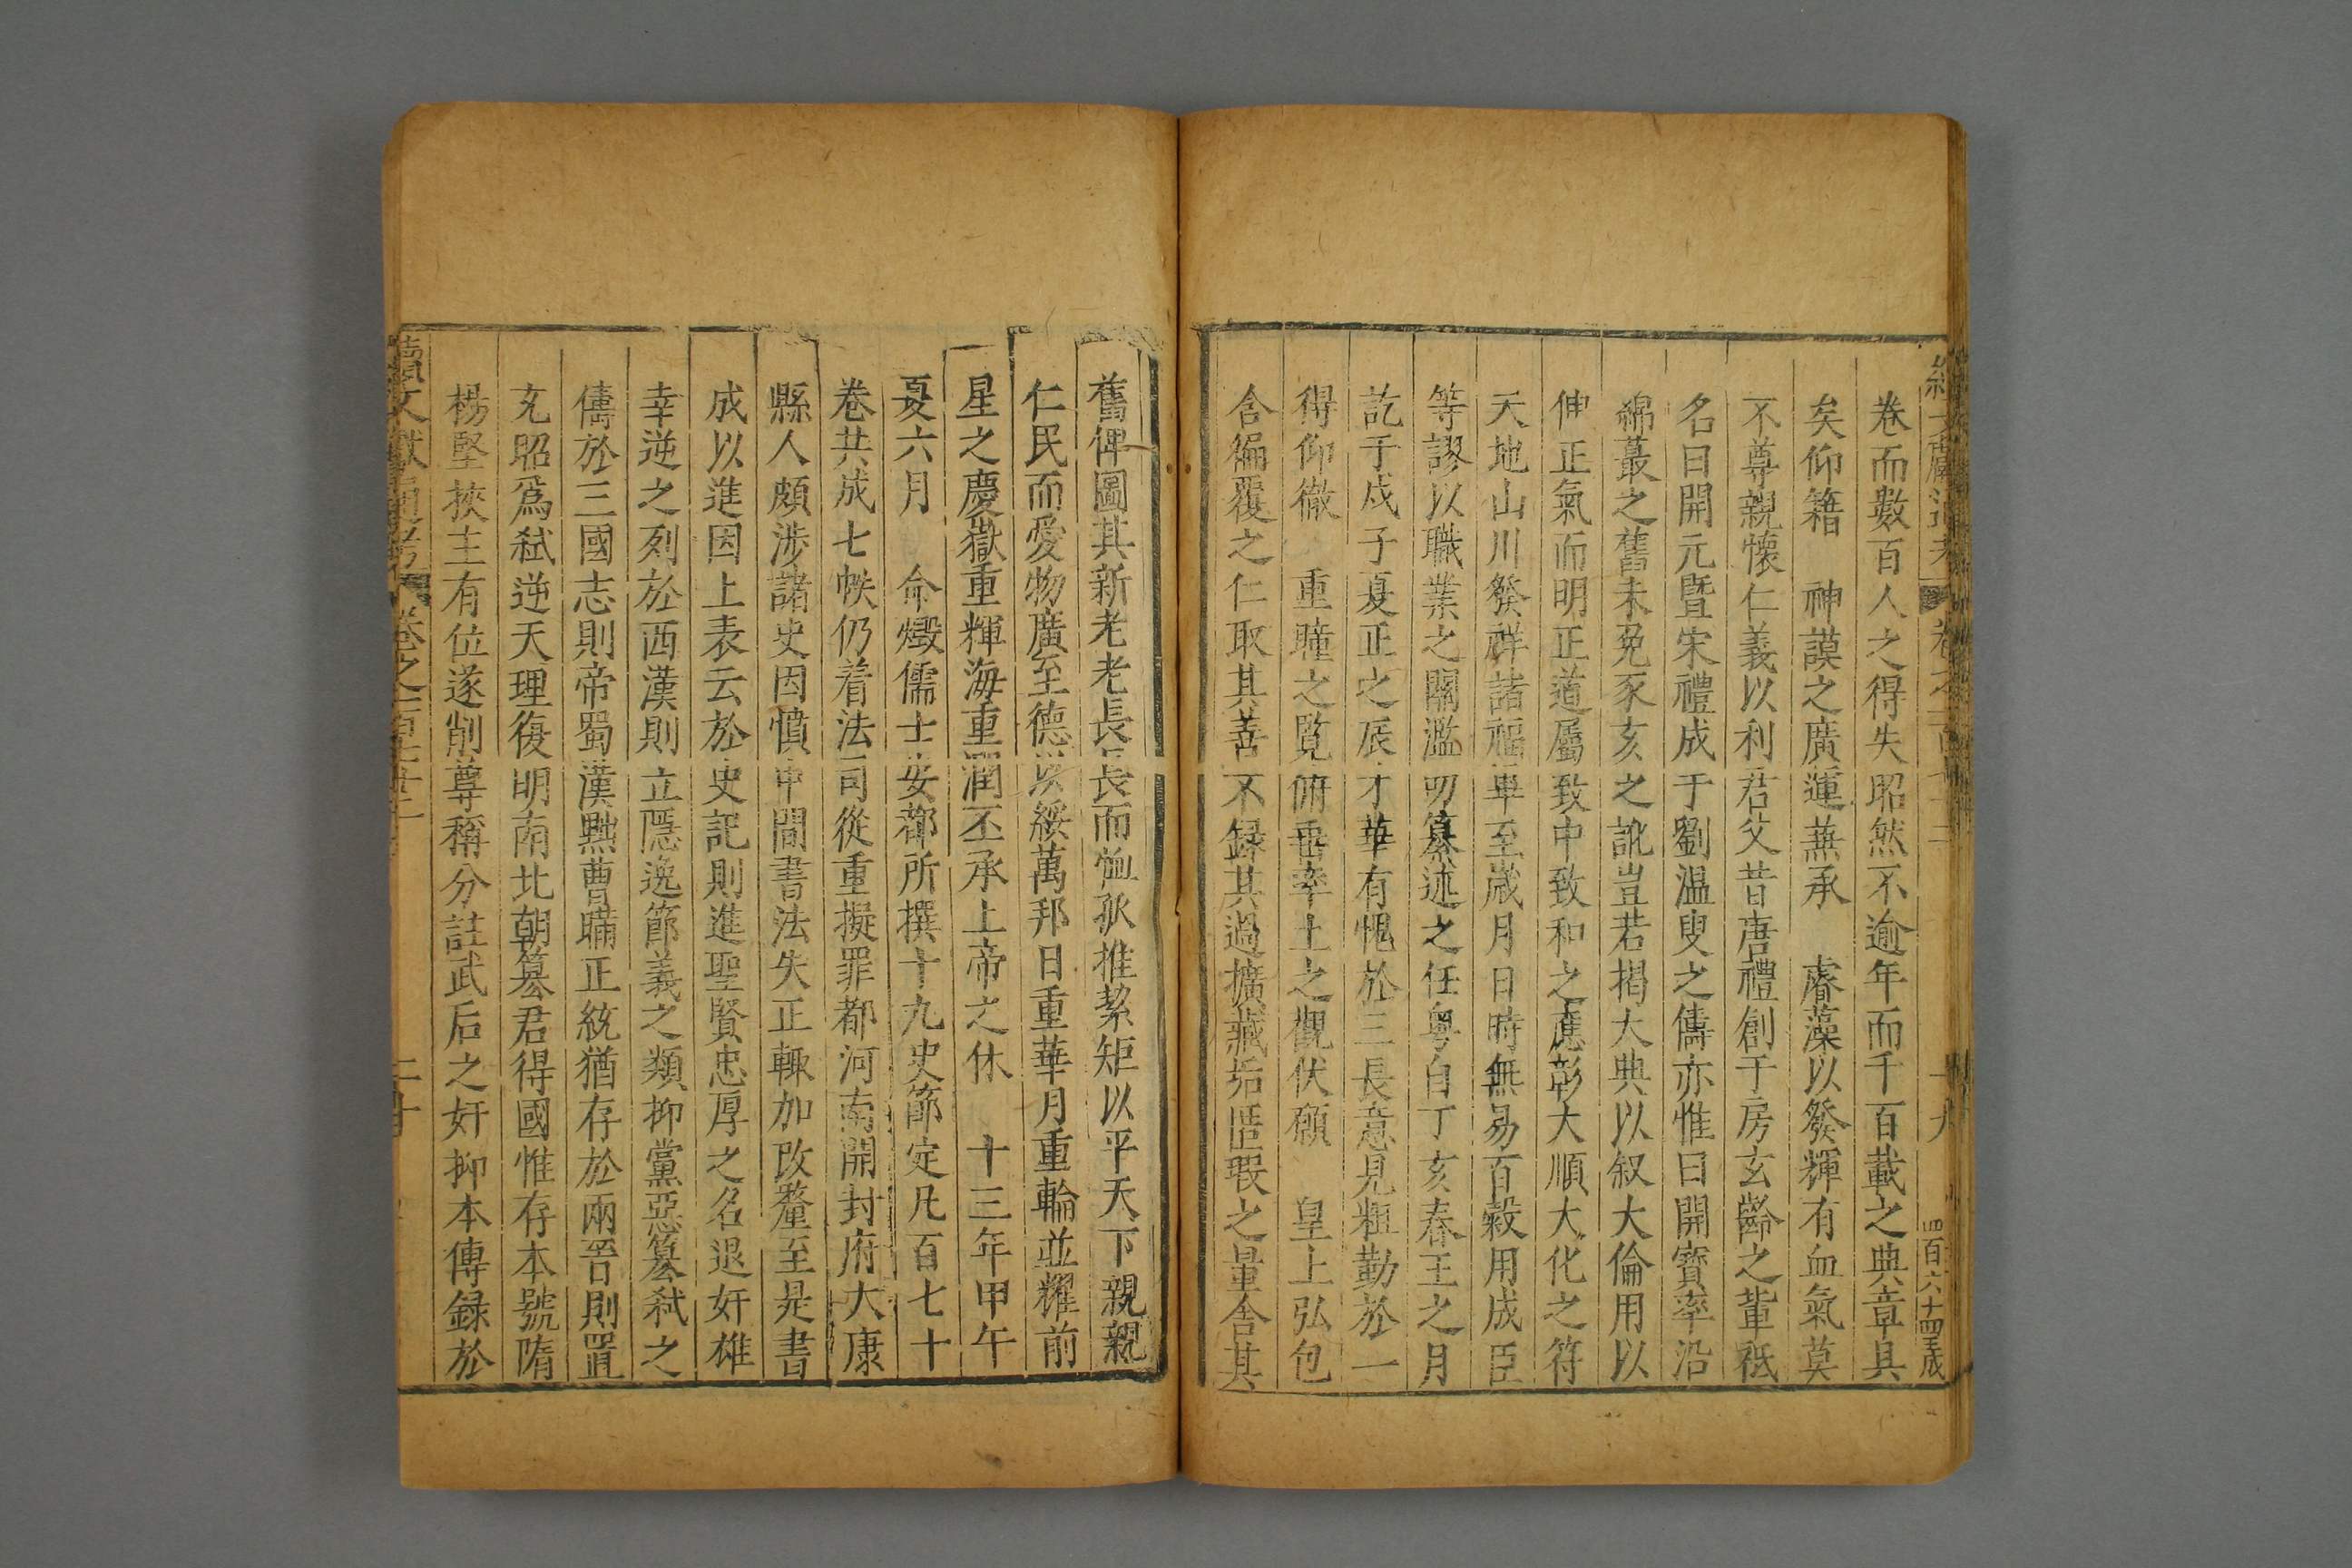 卷而數百人之得失昭然不逾年而千百載之典章具
矣仰籍　神謨之廣運兼承　睿藻以發輝有血氣莫
不尊親懷仁義以利君父昔唐禮創于房玄齡之輩祗
名曰開元暨宋禮成于劉溫叟之儔亦惟曰開寶率沿
綿蕞之舊未免豕亥之訛豈若揭大典以叙大倫用以
伸正氣而明正道屬致中致和之應彰大順大化之符
天地山川發祥諸福畢至歲月日時無易百穀用成臣
等謬以職業之關濫叨纂述之任粤自丁亥春王之月
訖于戊子夏正之辰才華有愧於三長意見粗勤於一
得仰徹　重瞳之覽俯垂率土之觀伏願　皇上弘包
含徧覆之仁取其善不録其過擴藏垢匿瑕之量舍其
舊俾圖其新老老長長而恤孤推絜矩以平天下親親
仁民而愛物廣至德以綏萬邦日重華月重輪並耀前
星之慶嶽重輝海重潤丕承上帝之休　十三年甲午
夏六月　命燬儒士安都所撰十九史節定凡百七十
卷共成七帙仍着法司從重擬罪都河南開封府大康
縣人頗渉諸史因憤中間書法失正輙加改釐至是書
成以進因上表云於史記則進聖賢忠厚之名退奸雄
幸逆之列於西漢則立隱逸節義之類抑黨惡簒弒之
儔於三國志則帝蜀漢黜曹瞞正統猶存於兩晉則置
充昭爲弒逆天理復明南北朝簒君得國惟存本號隋
楊堅挾主有位遂削尊稱分註武后之奸抑本傳録於